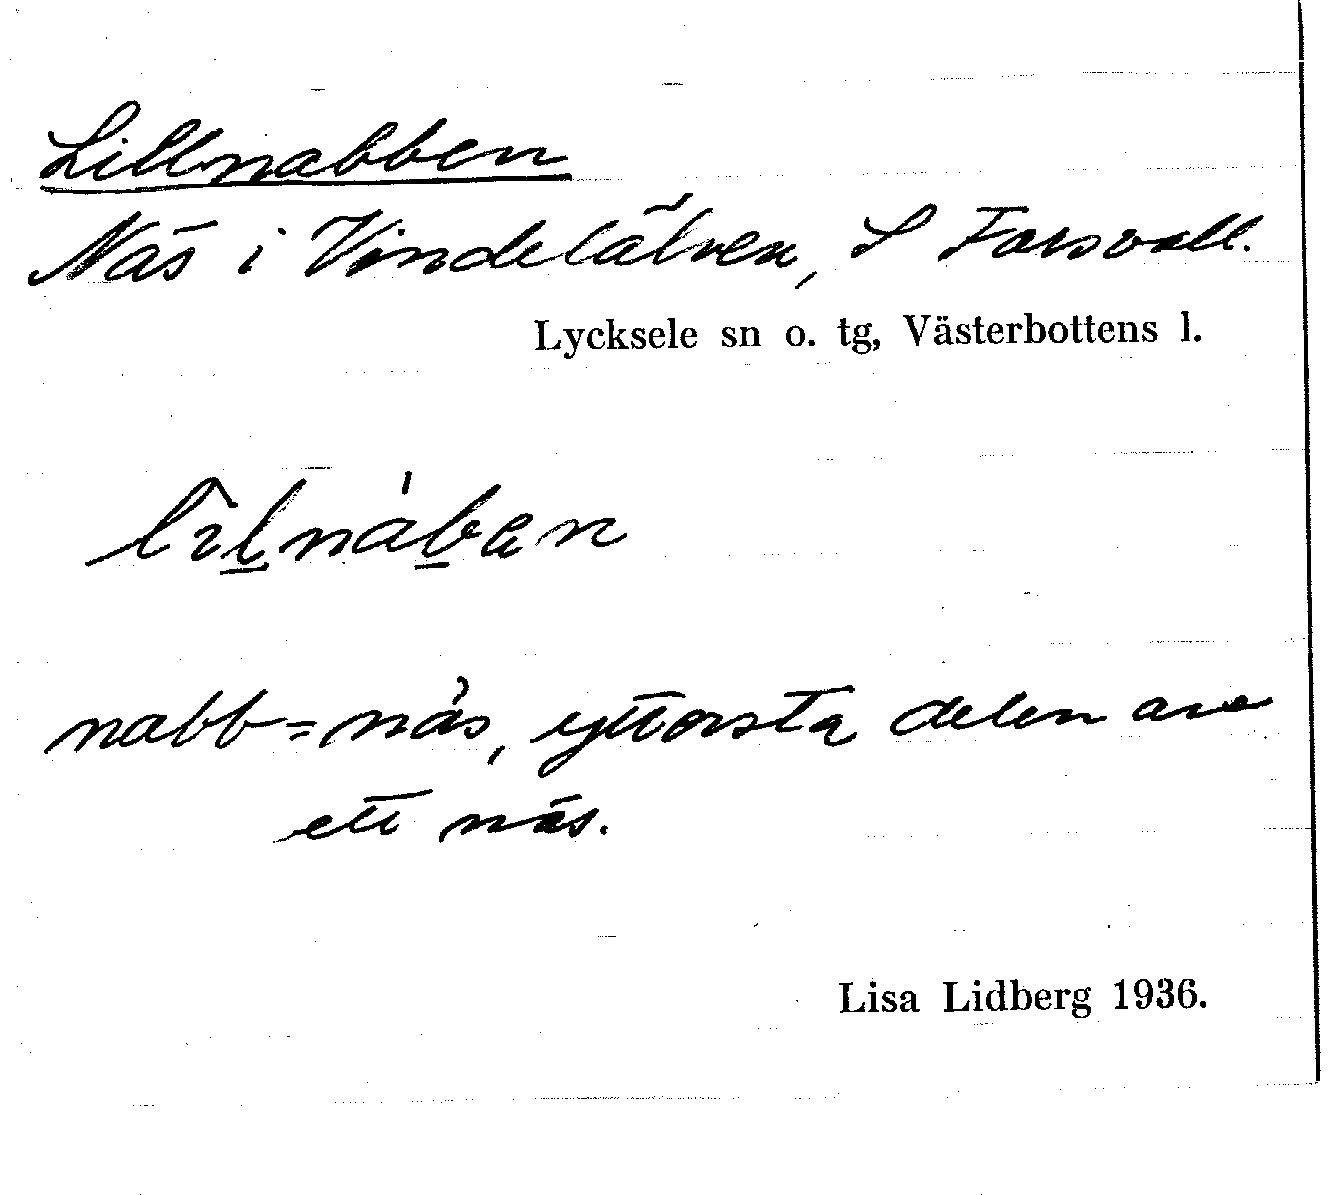 Lillnabben
Näs i Vindelälven, S Forsvall.
Lycksele sn o. tg, Västerbottens l.
nabb = näs, yttersta delen av
ett näs.
Lisa Lidberg 1936.